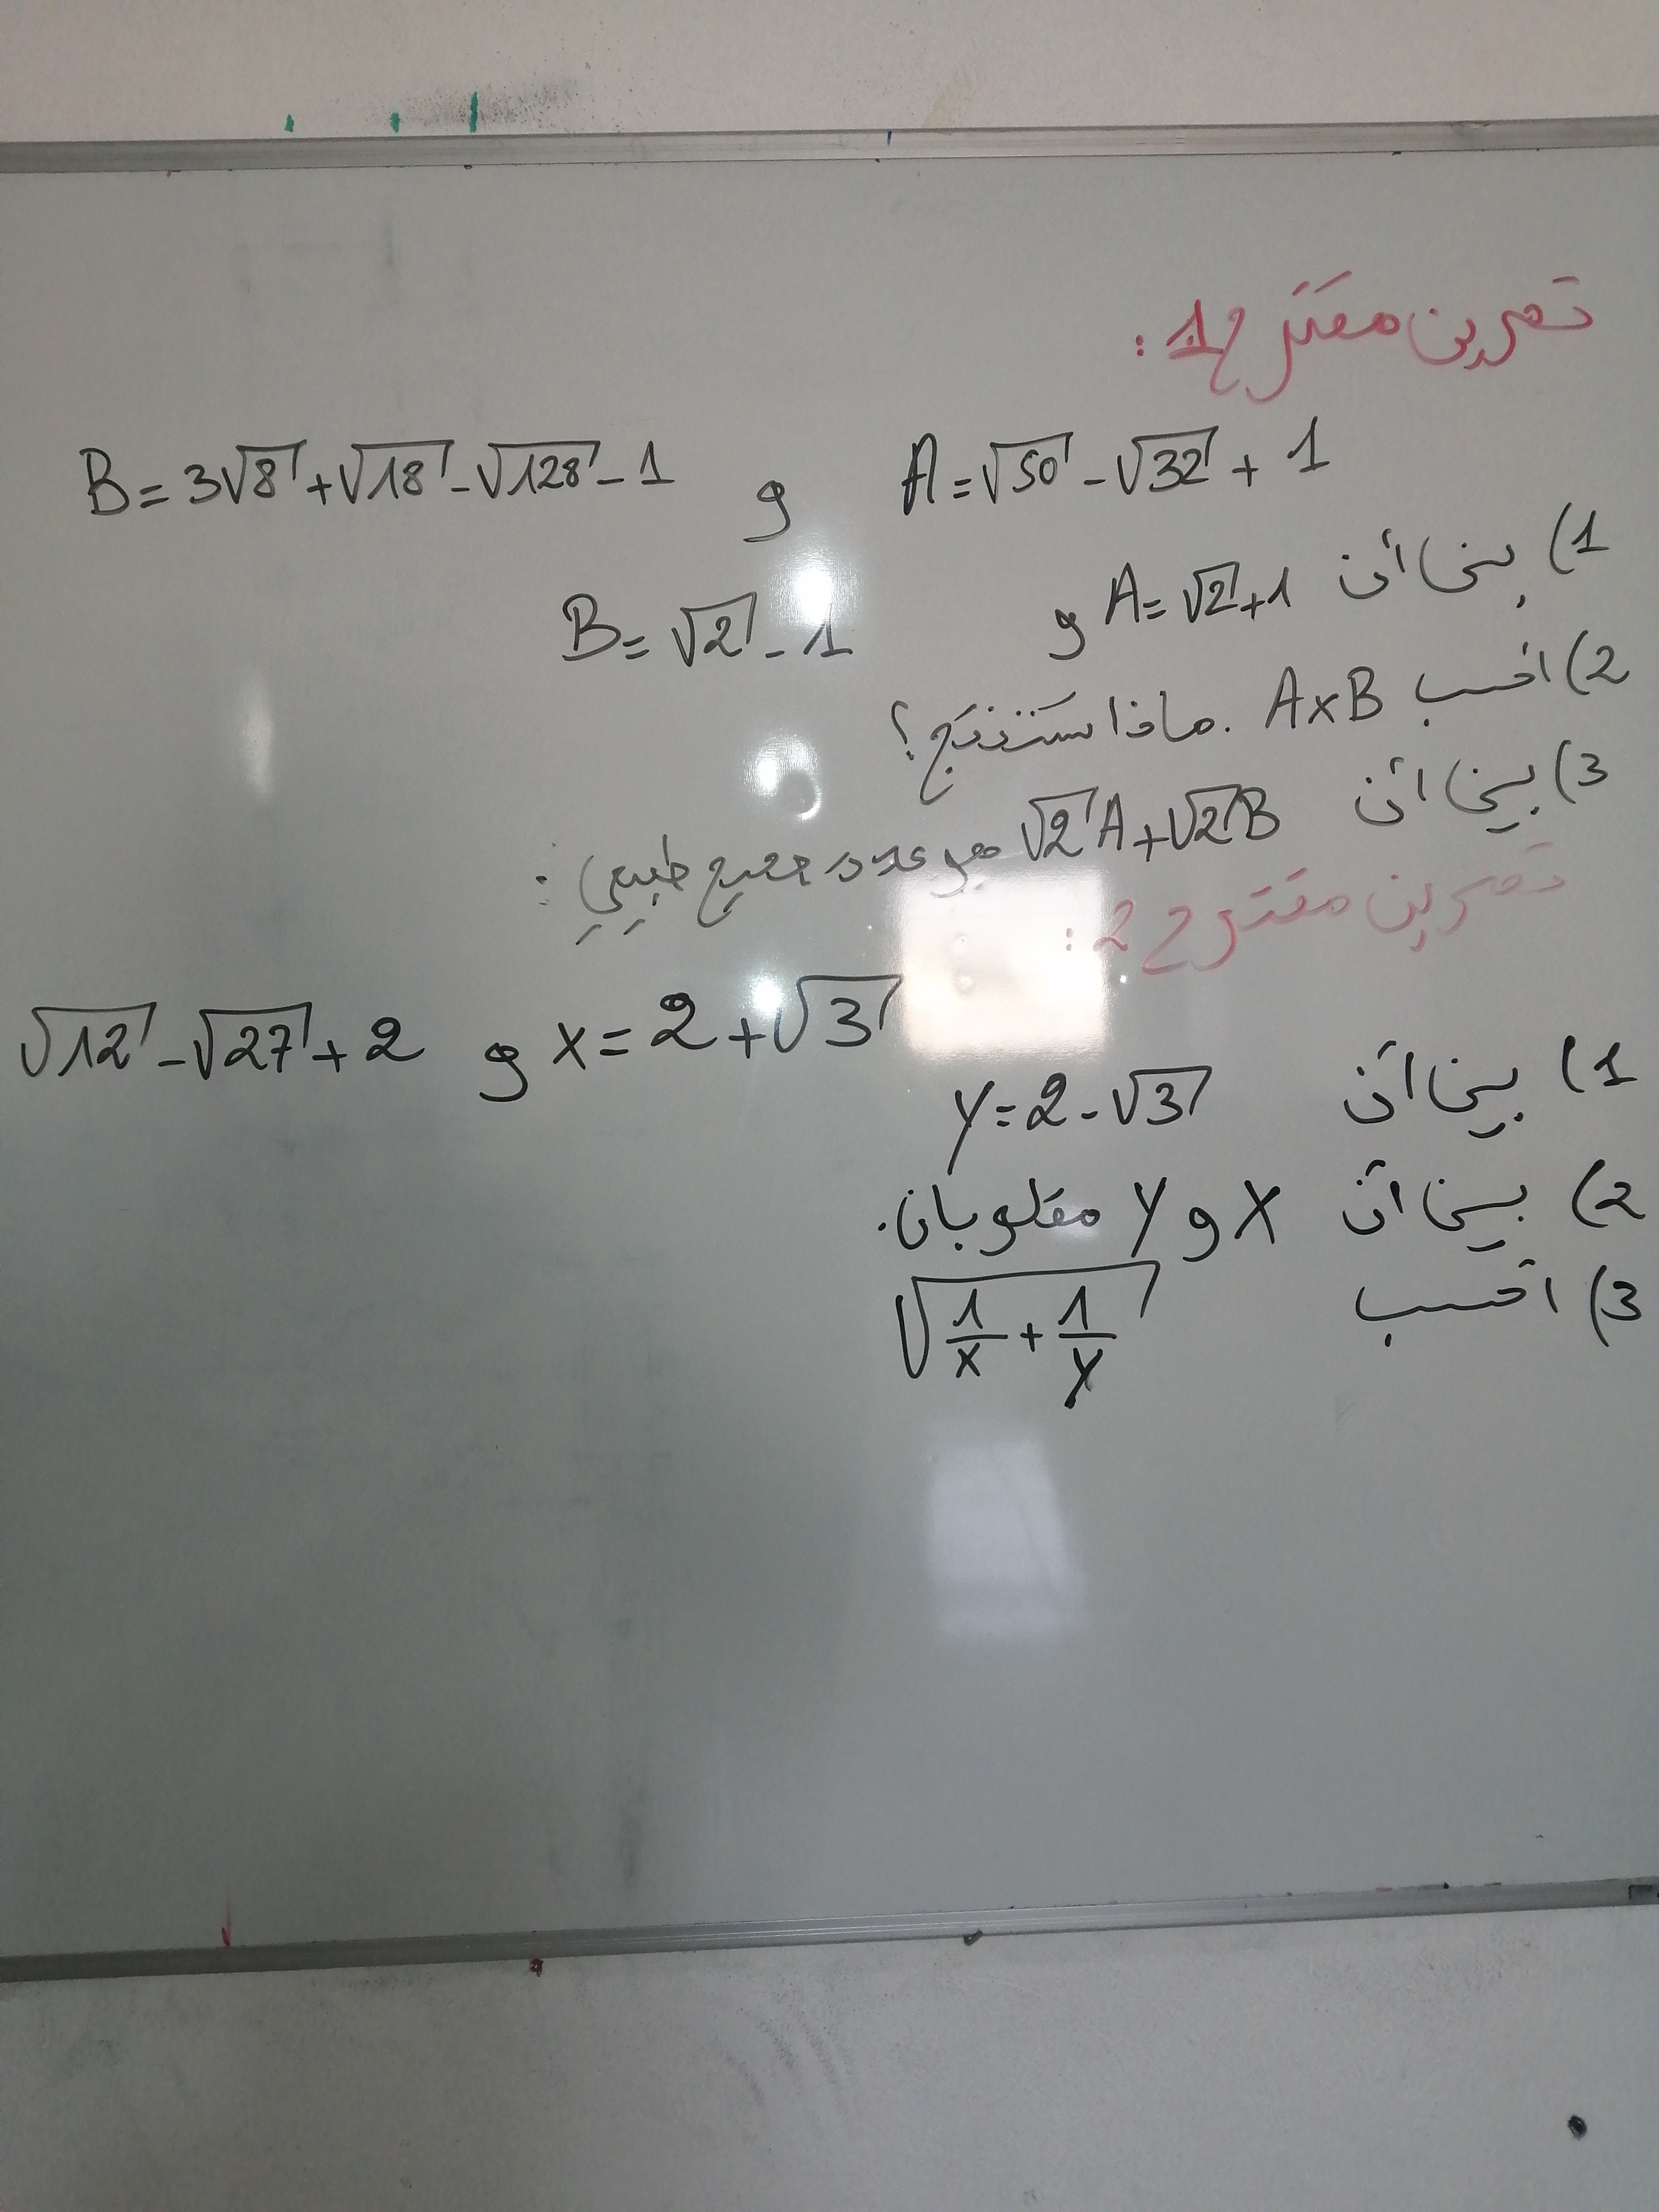 تمرين مقترح 1:
A = √50 - √32 + 1 و B = 3√8 + √18 - √128 - 1
1) بين أن A = √2 + 1 و B = √2 - 1
2) احسب A×B. ماذا تستنتج؟
3) بين أن √2A + √2B هو عدد صحيح طبيعي:
تمرين مقترح 2:
x = 2 + √3 و √12 - √27 + 2
1) بين أن y = 2 - √3
2) بين أن x و y مقلوبان.
3) احسب √(1/x + 1/y)